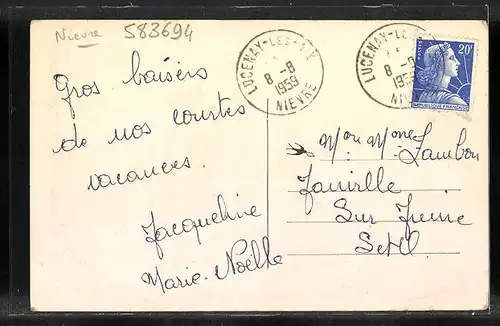 Nievre 583694
LUCENAY-LES-AIX
8 -8
1959
NIEVRE
LUCENAY-LES
8
1959
NIEV
20F
REPUBLIQUE FRANÇAISE
Gros baisers
de nos courtes
vacances.
Jacqueline
Marie-Noëlle
Mon Mme Jambon
Janville
Sur Juine
S et O.